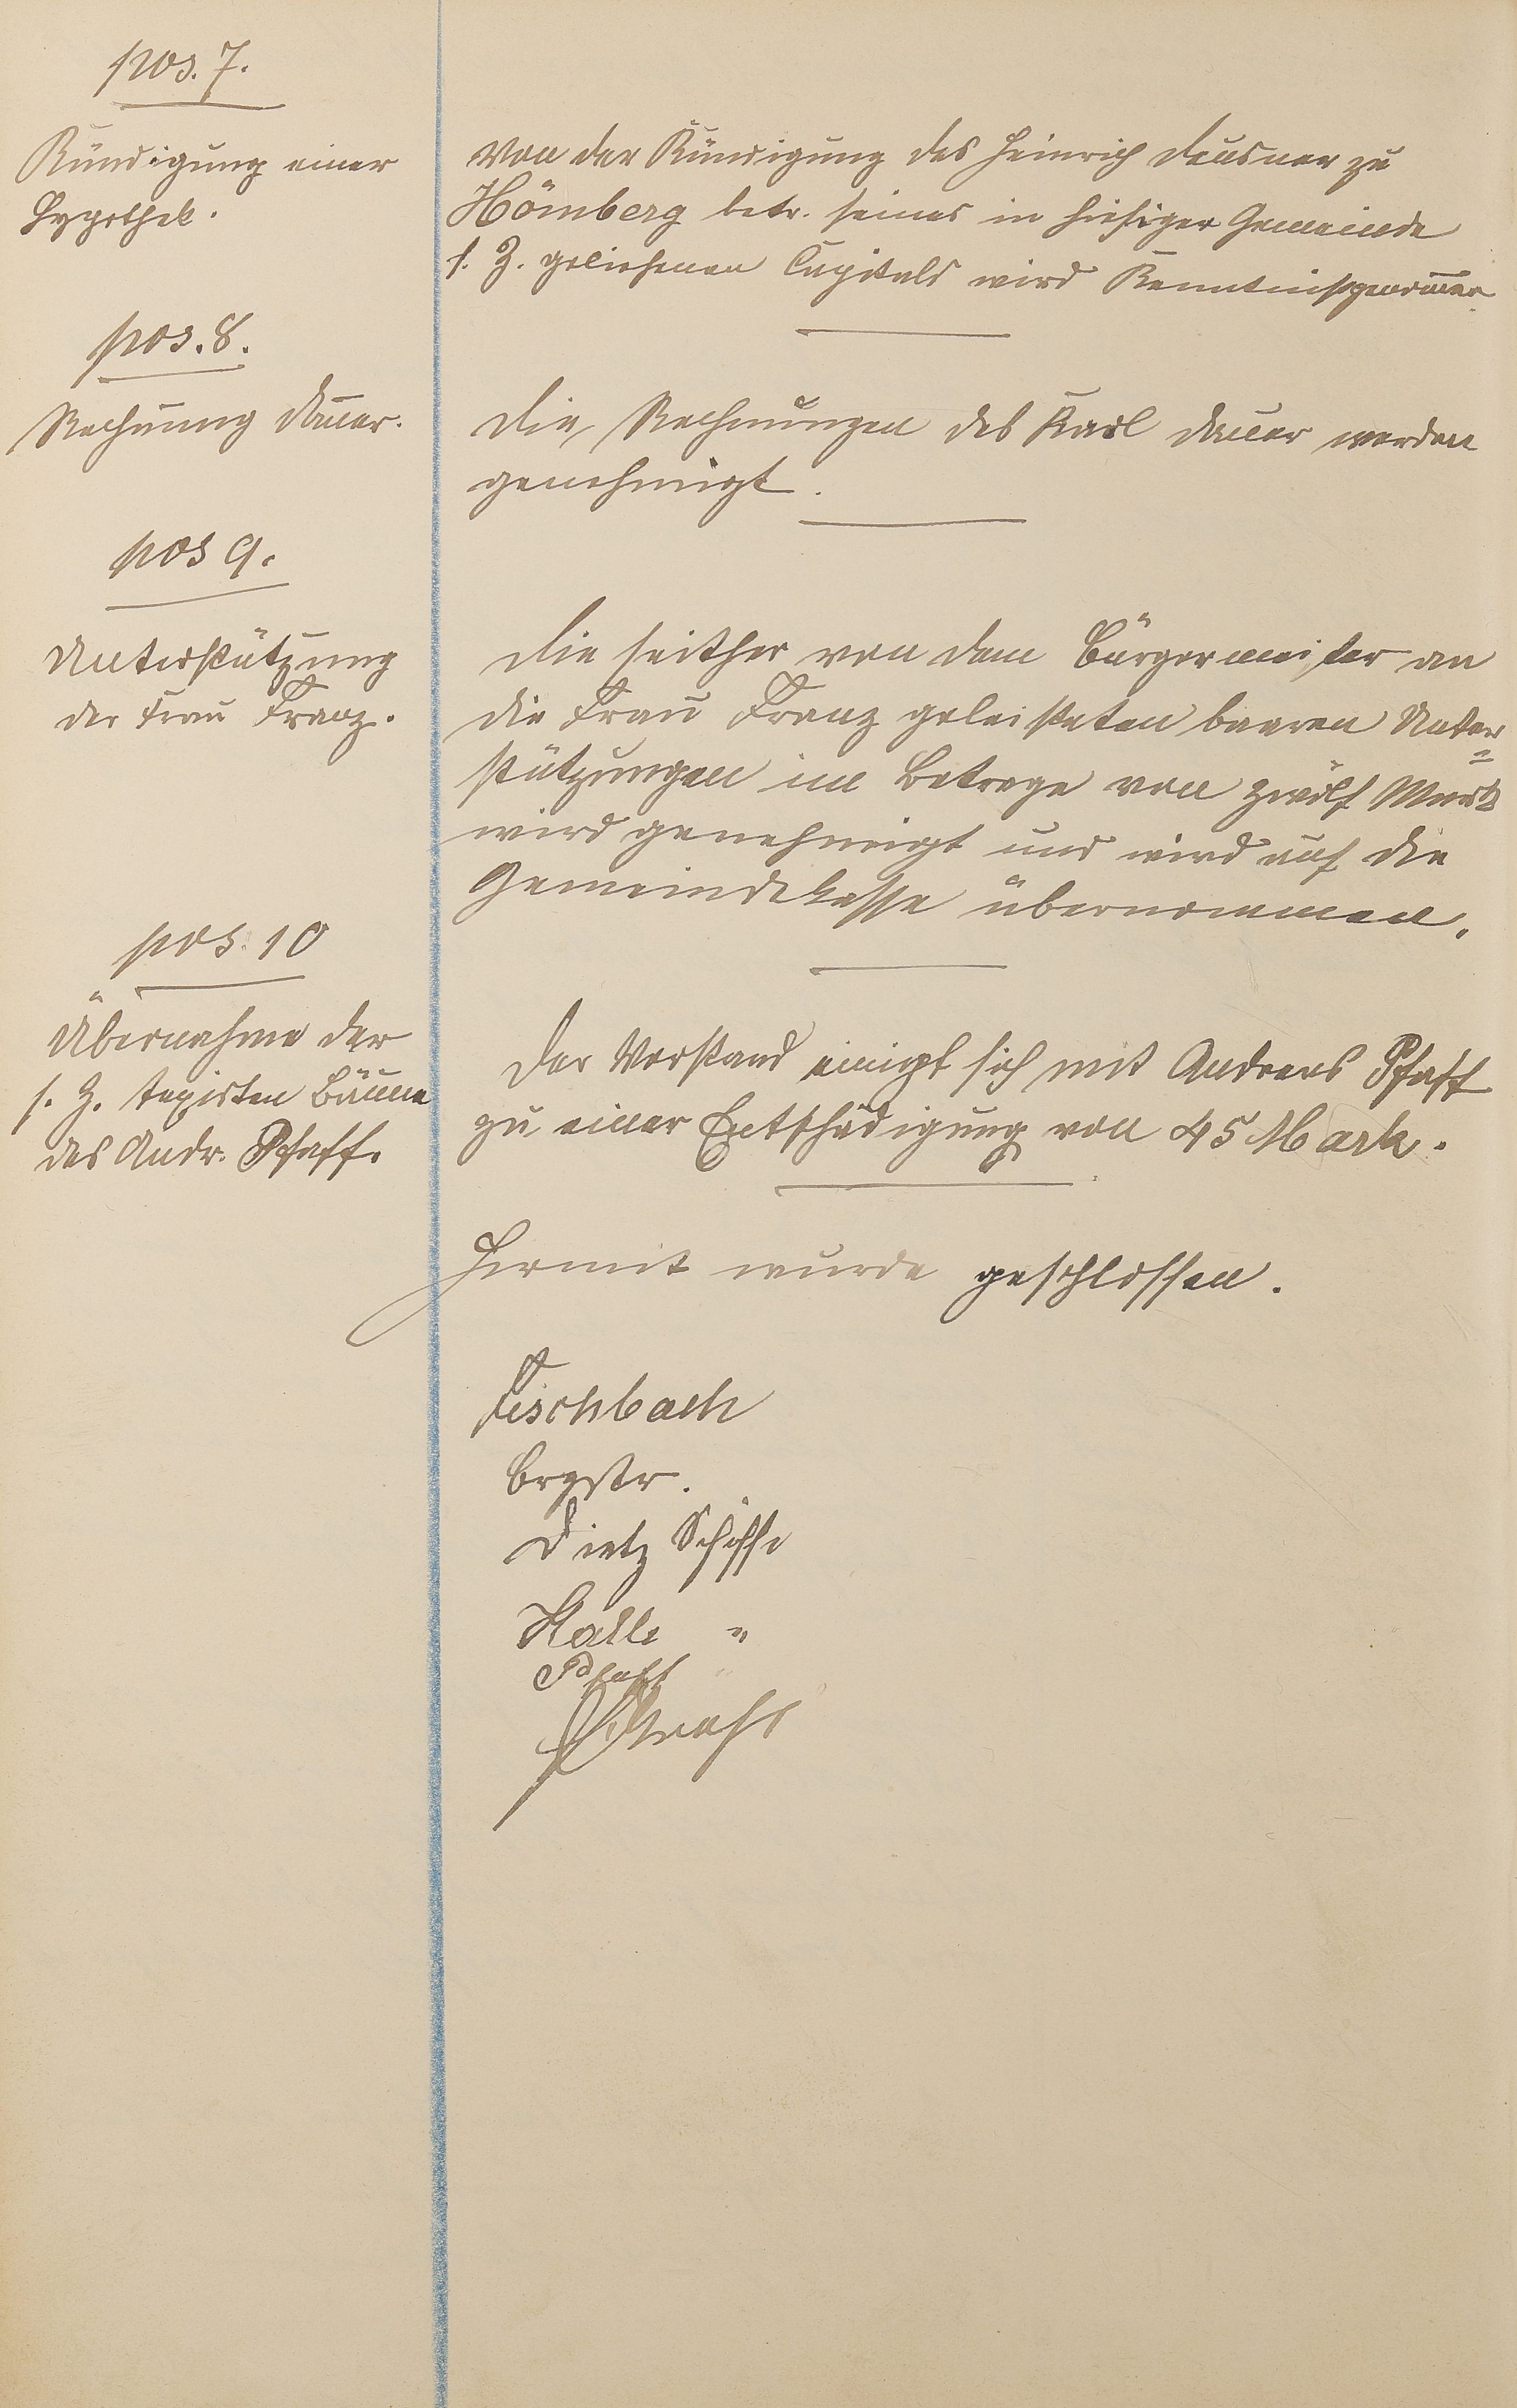 pos. 7.
Kündigung einer
Hypothek.
Von der Kündigung des Heinrich Deusner zu
Hömberg betr. seines in hiesiger Gemeinde
s. Z. geliehenen Capitals wird Kenntniß genommen.
pos. 8.
Rechnung Dauer.
Die Rechnungen des Karl Dauer werden
genehmigt.
pos 9.
Unterstützung
der Frau Franz.
Die seither von dem Bürgermeister an
die Frau Franz geleisteten baaren Unter=
stützungen im Betrage von zwölf Mark
wird genehmigt und wird auf die
Gemeindekasse übernommen.
pos. 10
Übernahme der
s. Z. taxirten Bäume
des Andr. Pfaff.
Der Vorstand einigt sich mit Andreas Pfaff
zu einer Entschädigung von 45 Mark.
Hermit wurde geschlossen.
Fischbach
Brgstr.
Dietz Schöffe
Halle "
Pfaff "